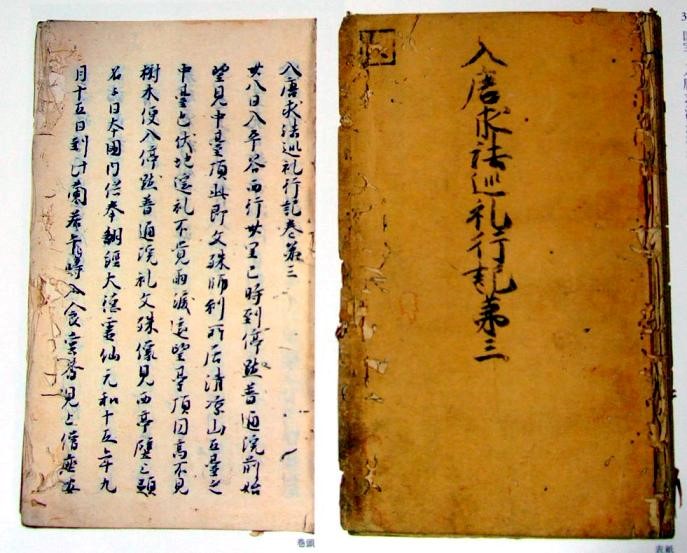 入唐求法巡礼行記第三
入唐求法巡礼行記巻第三
廿八日入平谷西行卅里巳時到停點普通院前始
望見中臺頂此即文殊師利所居清凉山五臺之
中臺也伏地遥礼不覚雨涙遥望臺頂圓高不見
樹木便入停點普通院礼文殊像見西亭壁上題
名云日本國内供奉翻經大徳霊仙元和十五年九
月十五日到此蘭若午時入食堂斎見上僧座安
巻頭
表紙